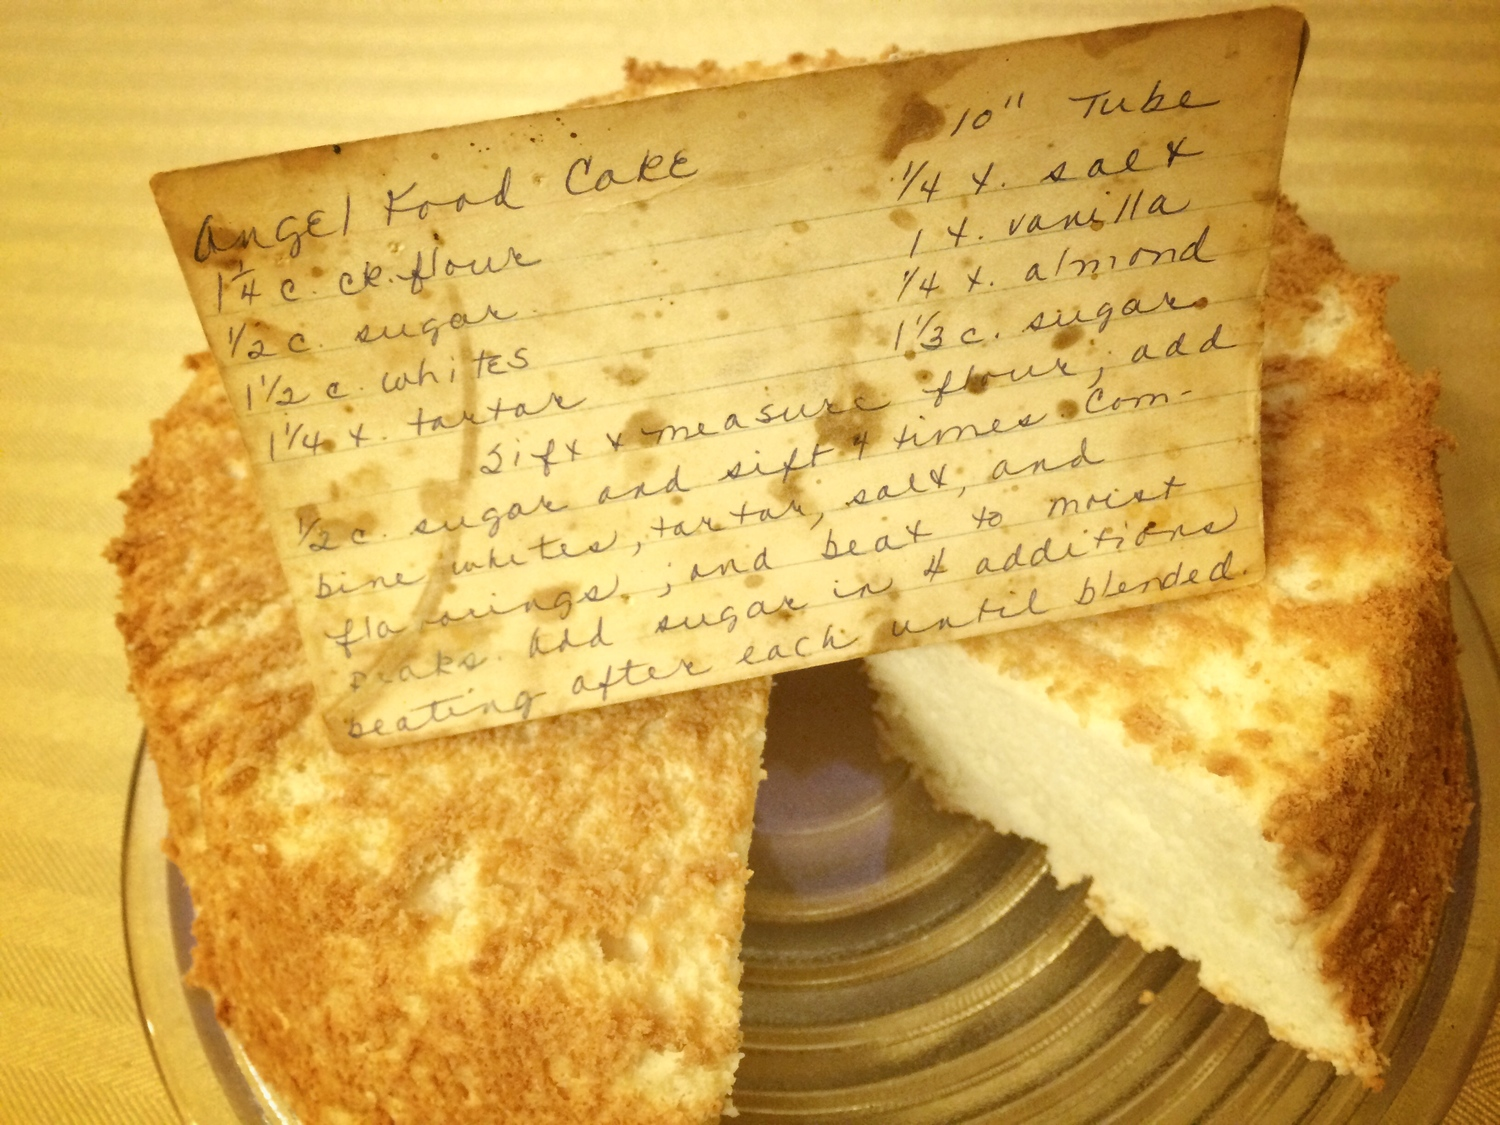 10" Tube
Angel Food Cake
1/4 t. salt
1 1/4 c. ck. flour
1 t. vanilla
1/2 c. sugar
1/4 t. almond
1 1/2 c. whites
1 1/3 c. sugar
1 1/4 t. tartar
Sift & measure flour, add
1/2 c. sugar and sift 4 times. Com-
bine whites, tartar, salt, and
flavorings; and beat to moist
peaks. Add sugar in 4 additions
beating after each until blended.